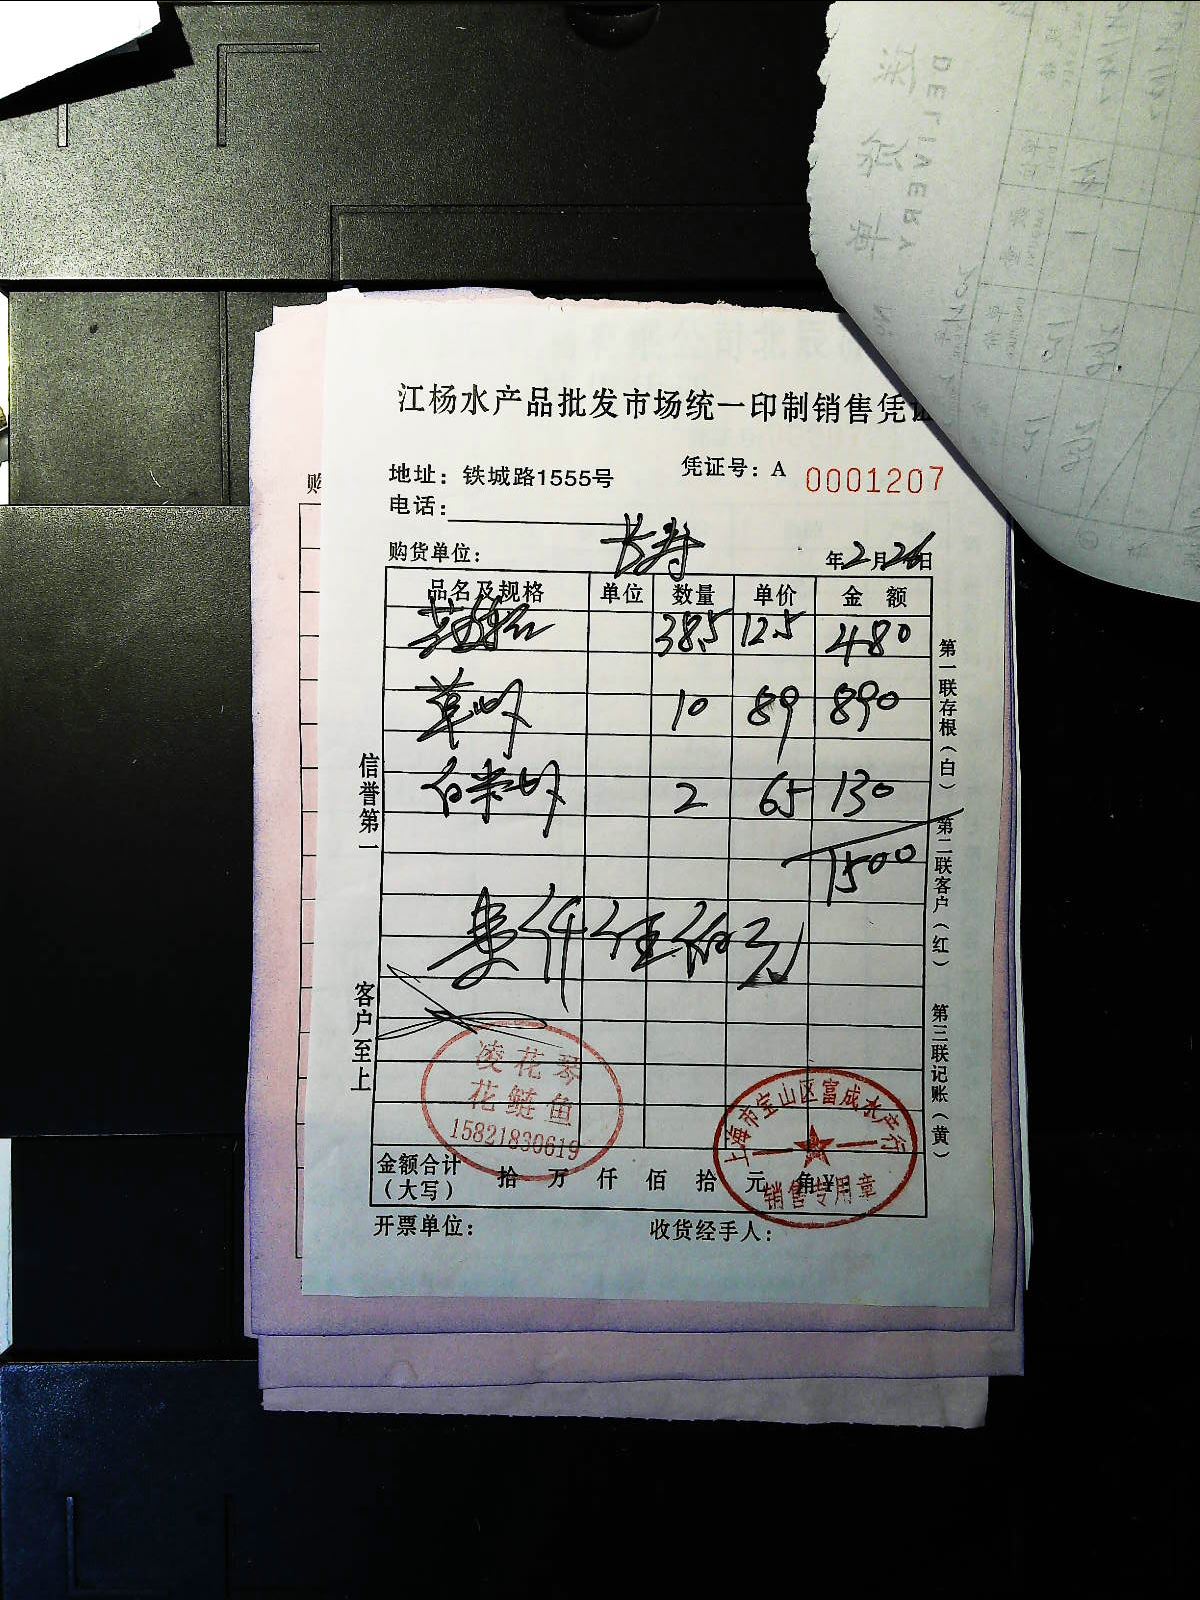 江杨水产品批发市场统一印制销售凭证
地址：铁城路1555号 凭证号：A 0001207
电话：
购货单位： 长寿 年2月26日
购
品名及规格 单位 数量 单价 金 额
38.5 12.5 480
草 10 89 890
白米 2 65 130
1500
壹仟伍佰元
信誉第一
客户至上
第一联存根（白） 第二联客户（红） 第三联记账（黄）
凌花琴
花鲢鱼
15821830619
上海市宝山区富成水产行
销售专用章
金额合计（大写） 拾 万 仟 佰 拾 元 角 ¥
开票单位： 收货经手人：
DELIVERY